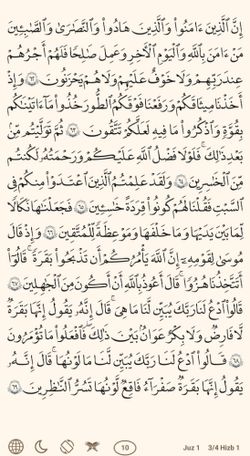 إِنَّ ٱلَّذِينَ ءَامَنُوا۟ وَٱلَّذِينَ هَادُوا۟ وَٱلنَّصَـٰرَىٰ وَٱلصَّـٰبِـِٔينَ
مَنْ ءَامَنَ بِٱللَّهِ وَٱلْيَوْمِ ٱلْـَٔاخِرِ وَعَمِلَ صَـٰلِحًا فَلَهُمْ أَجْرُهُمْ
عِندَ رَبِّهِمْ وَلَا خَوْفٌ عَلَيْهِمْ وَلَا هُمْ يَحْزَنُونَ ٦٢ وَإِذْ
أَخَذْنَا مِيثَـٰقَكُمْ وَرَفَعْنَا فَوْقَكُمُ ٱلطُّورَ خُذُوا۟ مَآ ءَاتَيْنَـٰكُم
بِقُوَّةٍ وَٱذْكُرُوا۟ مَا فِيهِ لَعَلَّكُمْ تَتَّقُونَ ٦٣ ثُمَّ تَوَلَّيْتُم مِّنۢ
بَعْدِ ذَٰلِكَ ۖ فَلَوْلَا فَضْلُ ٱللَّهِ عَلَيْكُمْ وَرَحْمَتُهُۥ لَكُنتُم
مِّنَ ٱلْخَـٰسِرِينَ ٦٤ وَلَقَدْ عَلِمْتُمُ ٱلَّذِينَ ٱعْتَدَوْا۟ مِنكُمْ فِى
ٱلسَّبْتِ فَقُلْنَا لَهُمْ كُونُوا۟ قِرَدَةً خَـٰسِـِٔينَ ٦٥ فَجَعَلْنَـٰهَا نَكَـٰلًا
لِّمَا بَيْنَ يَدَيْهَا وَمَا خَلْفَهَا وَمَوْعِظَةً لِّلْمُتَّقِينَ ٦٦ وَإِذْ قَالَ
مُوسَىٰ لِقَوْمِهِۦٓ إِنَّ ٱللَّهَ يَأْمُرُكُمْ أَن تَذْبَحُوا۟ بَقَرَةً ۖ قَالُوٓا۟
أَتَتَّخِذُنَا هُزُوًا ۖ قَالَ أَعُوذُ بِٱللَّهِ أَنْ أَكُونَ مِنَ ٱلْجَـٰهِلِينَ ٦٧
قَالُوا۟ ٱدْعُ لَنَا رَبَّكَ يُبَيِّن لَّنَا مَا هِىَ ۚ قَالَ إِنَّهُۥ يَقُولُ إِنَّهَا بَقَرَةٌ
لَّا فَارِضٌ وَلَا بِكْرٌ عَوَانٌۢ بَيْنَ ذَٰلِكَ ۖ فَٱفْعَلُوا۟ مَا تُؤْمَرُونَ
٦٨ قَالُوا۟ ٱدْعُ لَنَا رَبَّكَ يُبَيِّن لَّنَا مَا لَوْنُهَا ۚ قَالَ إِنَّهُۥ
يَقُولُ إِنَّهَا بَقَرَةٌ صَفْرَآءُ فَاقِعٌ لَّوْنُهَا تَسُرُّ ٱلنَّـٰظِرِينَ ٦٩
10 Juz 1 3/4 Hizb 1